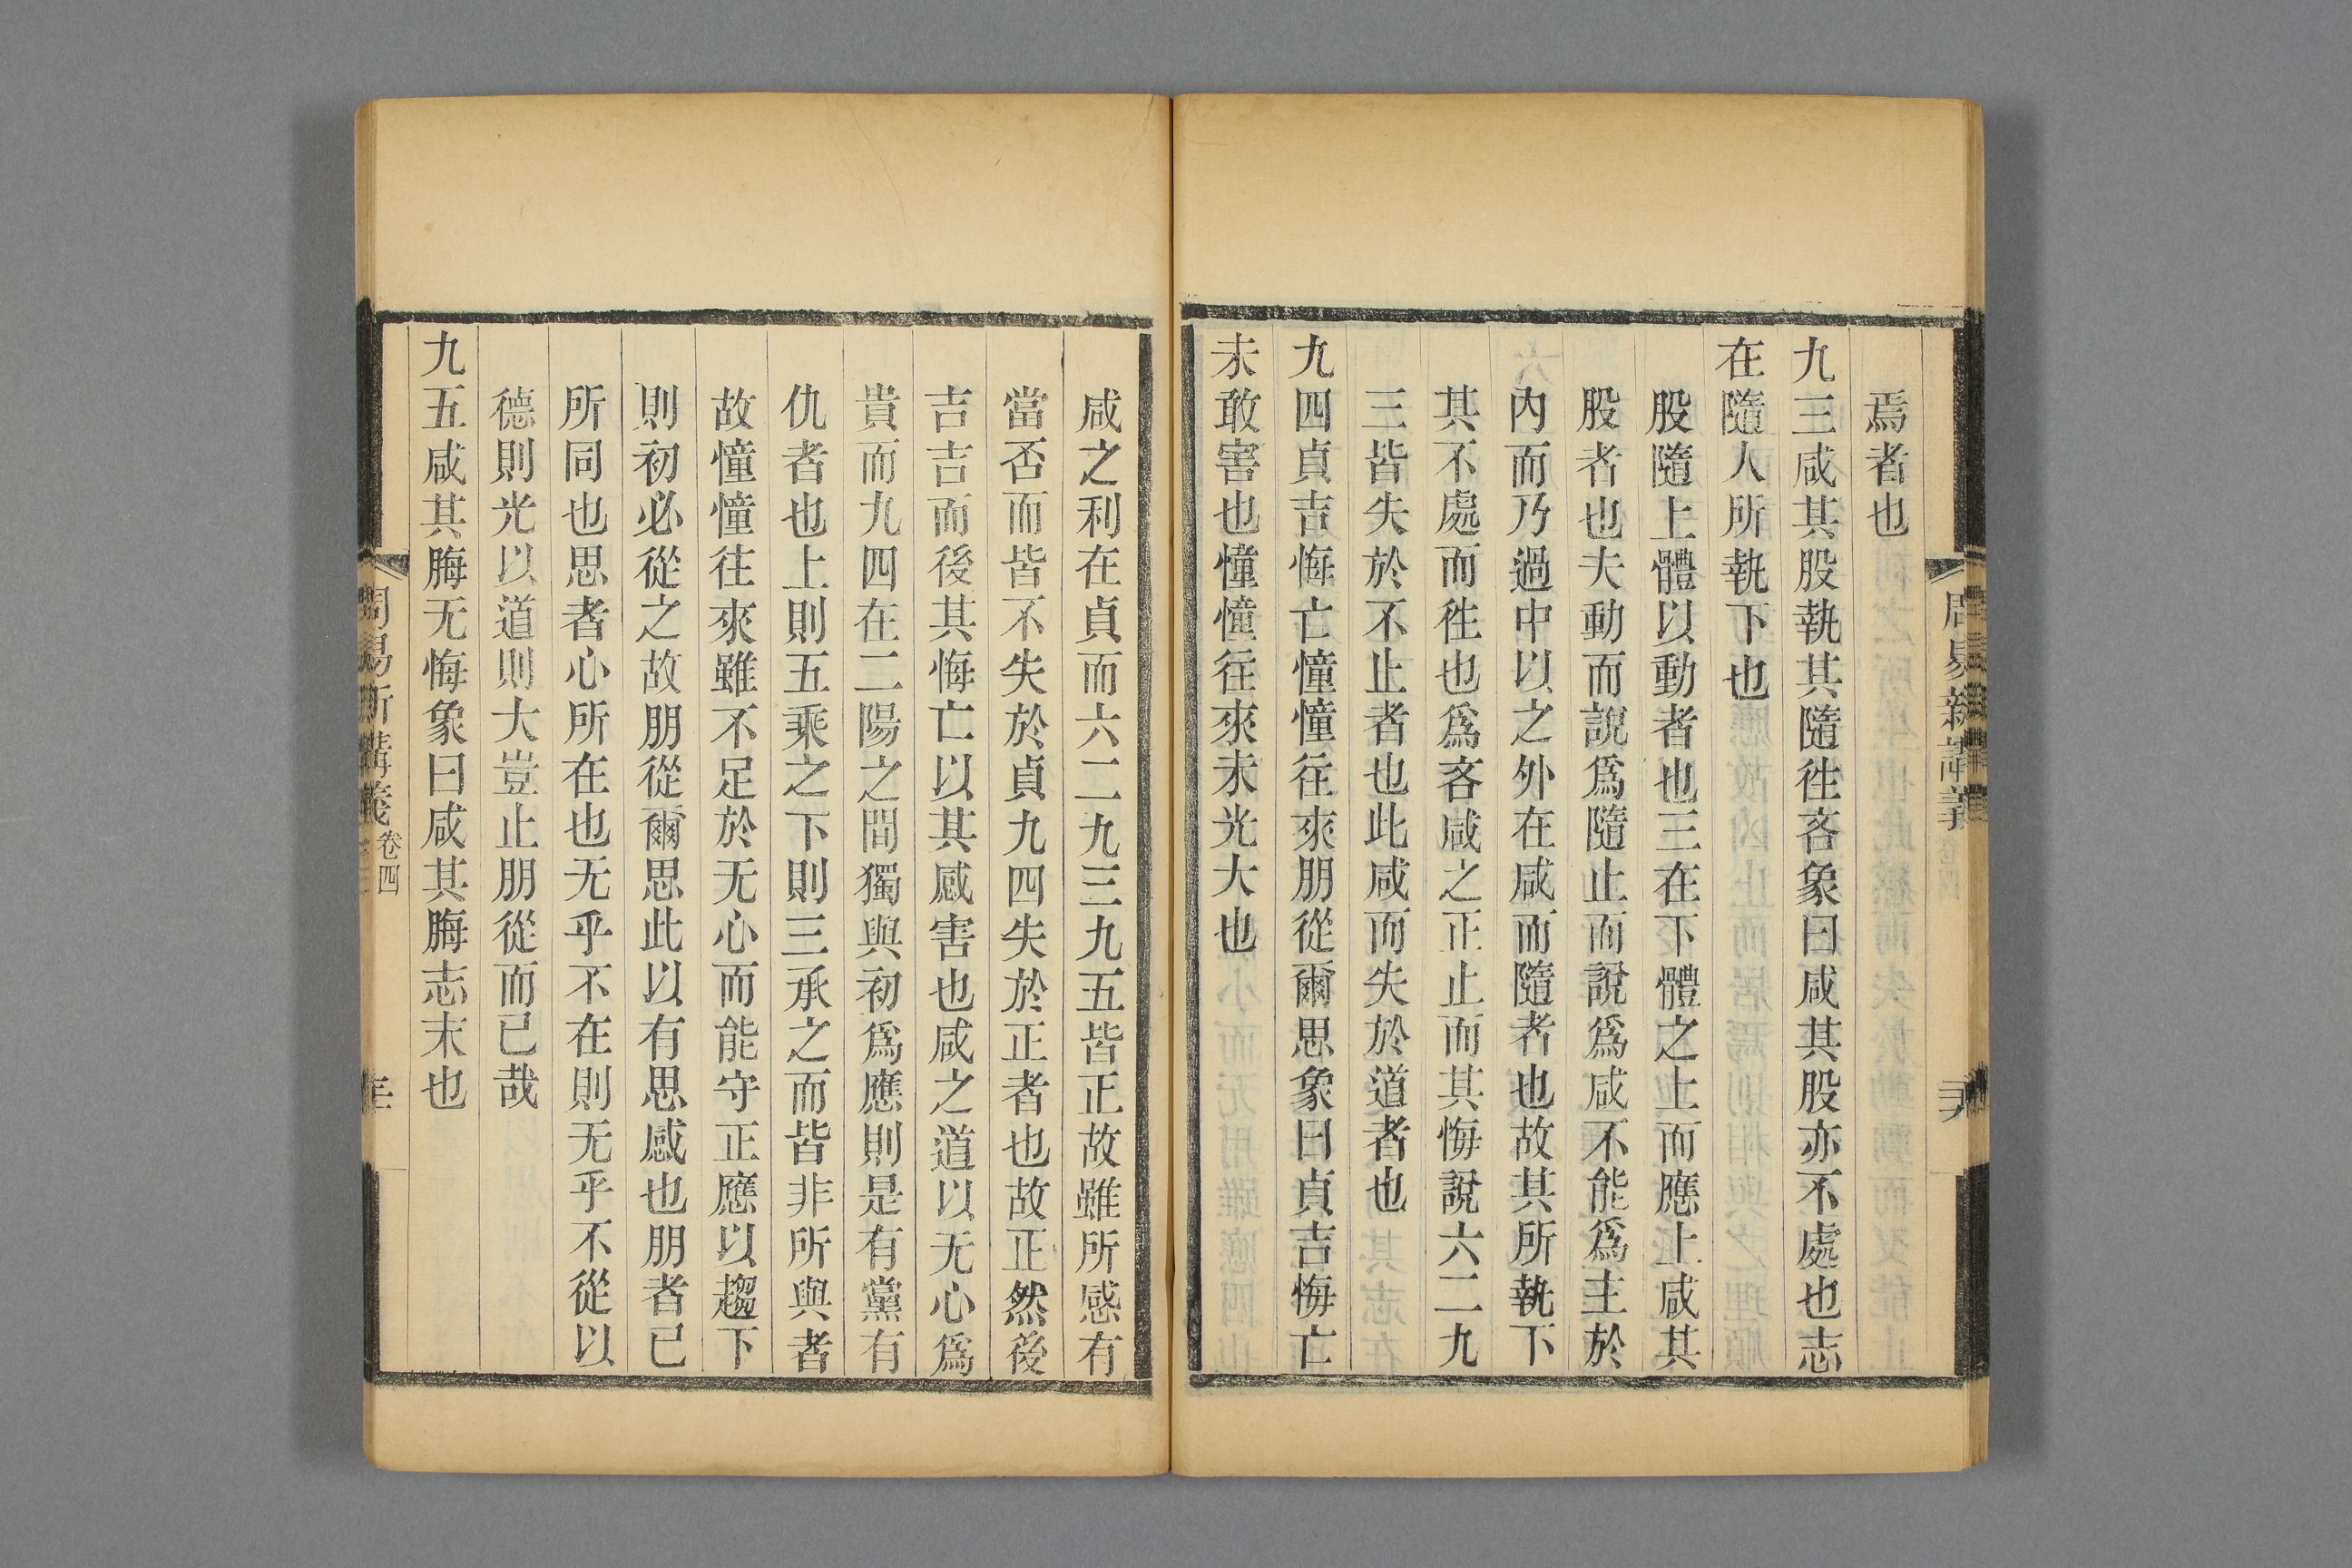 焉者也
九三咸其股執其隨徃吝象曰咸其股亦不處也志
在隨人所執下也
股隨上體以動者也三在下體之上而應上咸其
股者也夫動而說爲隨止而說爲咸不能爲主於
內而乃過中以之外在咸而隨者也故其所執下
其不處而徃也爲吝咸之正止而其悔說六二九
三皆失於不止者也此咸而失於道者也
九四貞吉悔亡憧憧往來朋從爾思象曰貞吉悔亡
未敢害也憧憧往來未光大也
咸之利在貞而六二九三九五皆正故雖所感有
當否而皆不失於貞九四失於正者也故正然後
吉吉而後其悔亡以其感害也咸之道以无心爲
貴而九四在二陽之間獨與初爲應則是有黨有
仇者也上則五乘之下則三承之而皆非所與者
故憧憧往來雖不足於无心而能守正應以趨下
則初必從之故朋從爾思此以有思感也朋者已
所同也思者心所在也无乎不在則无乎不從以
德則光以道則大豈止朋從而已哉
九五咸其脢无悔象曰咸其脢志末也
周易新講義
卷四